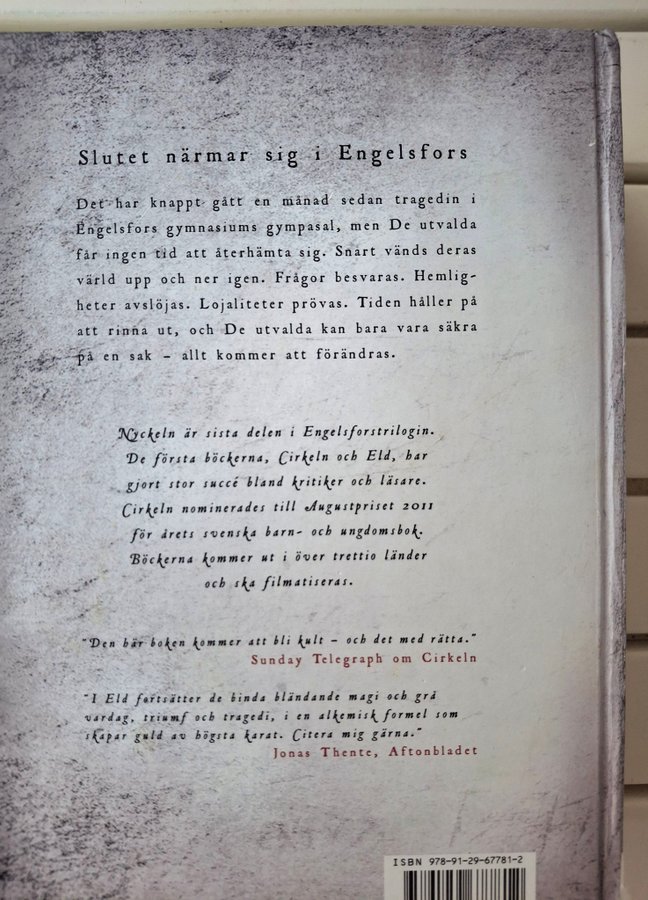 Slutet närmar sig i Engelsfors
Det har knappt gått en månad sedan tragedin i
Engelsfors gymnasiums gympasal, men De utvalda
får ingen tid att återhämta sig. Snart vänds deras
värld upp och ner igen. Frågor besvaras. Hemlig-
heter avslöjas. Lojaliteter prövas. Tiden håller på
att rinna ut, och De utvalda kan bara vara säkra
på en sak – allt kommer att förändras.
Nyckeln är sista delen i Engelsforstrilogin.
De första böckerna, Cirkeln och Eld, har
gjort stor succé bland kritiker och läsare.
Cirkeln nominerades till Augustpriset 2011
för årets svenska barn- och ungdomsbok.
Böckerna kommer ut i över trettio länder
och ska filmatiseras.
"Den här boken kommer att bli kult – och det med rätta."
Sunday Telegraph om Cirkeln
"I Eld fortsätter de binda bländande magi och grå
vardag, triumf och tragedi, i en alkemisk formel som
skapar guld av högsta karat. Citera mig gärna."
Jonas Thente, Aftonbladet
ISBN 978-91-29-67781-2